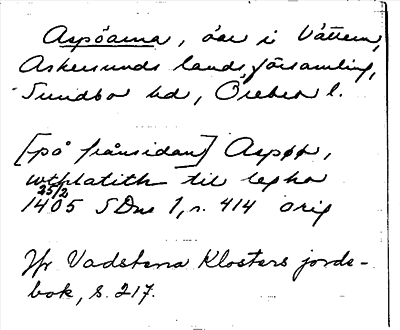 Aspöarna, öar i Vättern,
Askersunds landsförsamling,
Sundbo hd, Örebro l.
[på frånsidan] Aspøør,
wtplatith til legho
25/2
1405 SDns 1, n. 414 orig
Jfr Vadstena Klosters jorde-
bok, s. 217.